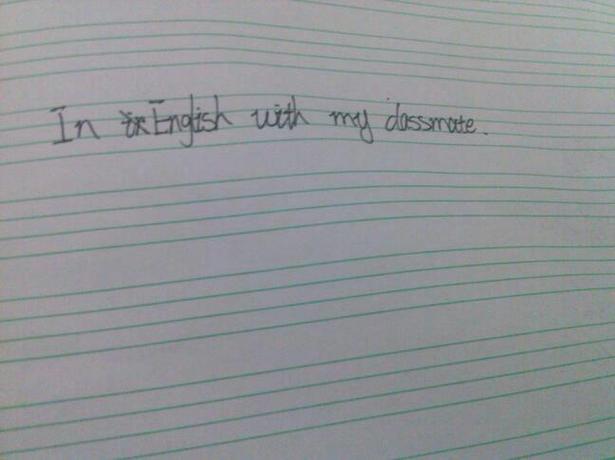 In English with my classmate.